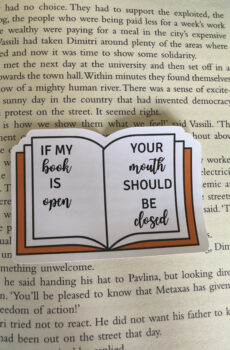 had no choice. They had to support the exploited, the
og, the people who were being paid less for a week's work
e wealthy were paying for a meal in the city's expensive
Vassili had taken Dimitri around plenty of the areas where
ed and now it was time to show some solidarity.
met the next day at the university and then set off in a
owards the town hall. Within minutes they found themselves
ow of a mighty human river. There was a sense of excite-
sunny day in the country that had invented democracy
protest on the street. It seemed right.
is how we show them what we feel!' said Vassili. 'Th
IF MY
book
IS
open
YOUR
mouth
SHOULD
BE
closed
mething unwelcome.
he said handing his hat to Pavlina, but looking direc
n. 'You'll be pleased to know that Metaxas has given
eedom of action!'
ri tried not to react. He did not want his father to k
had been out on the street that day.